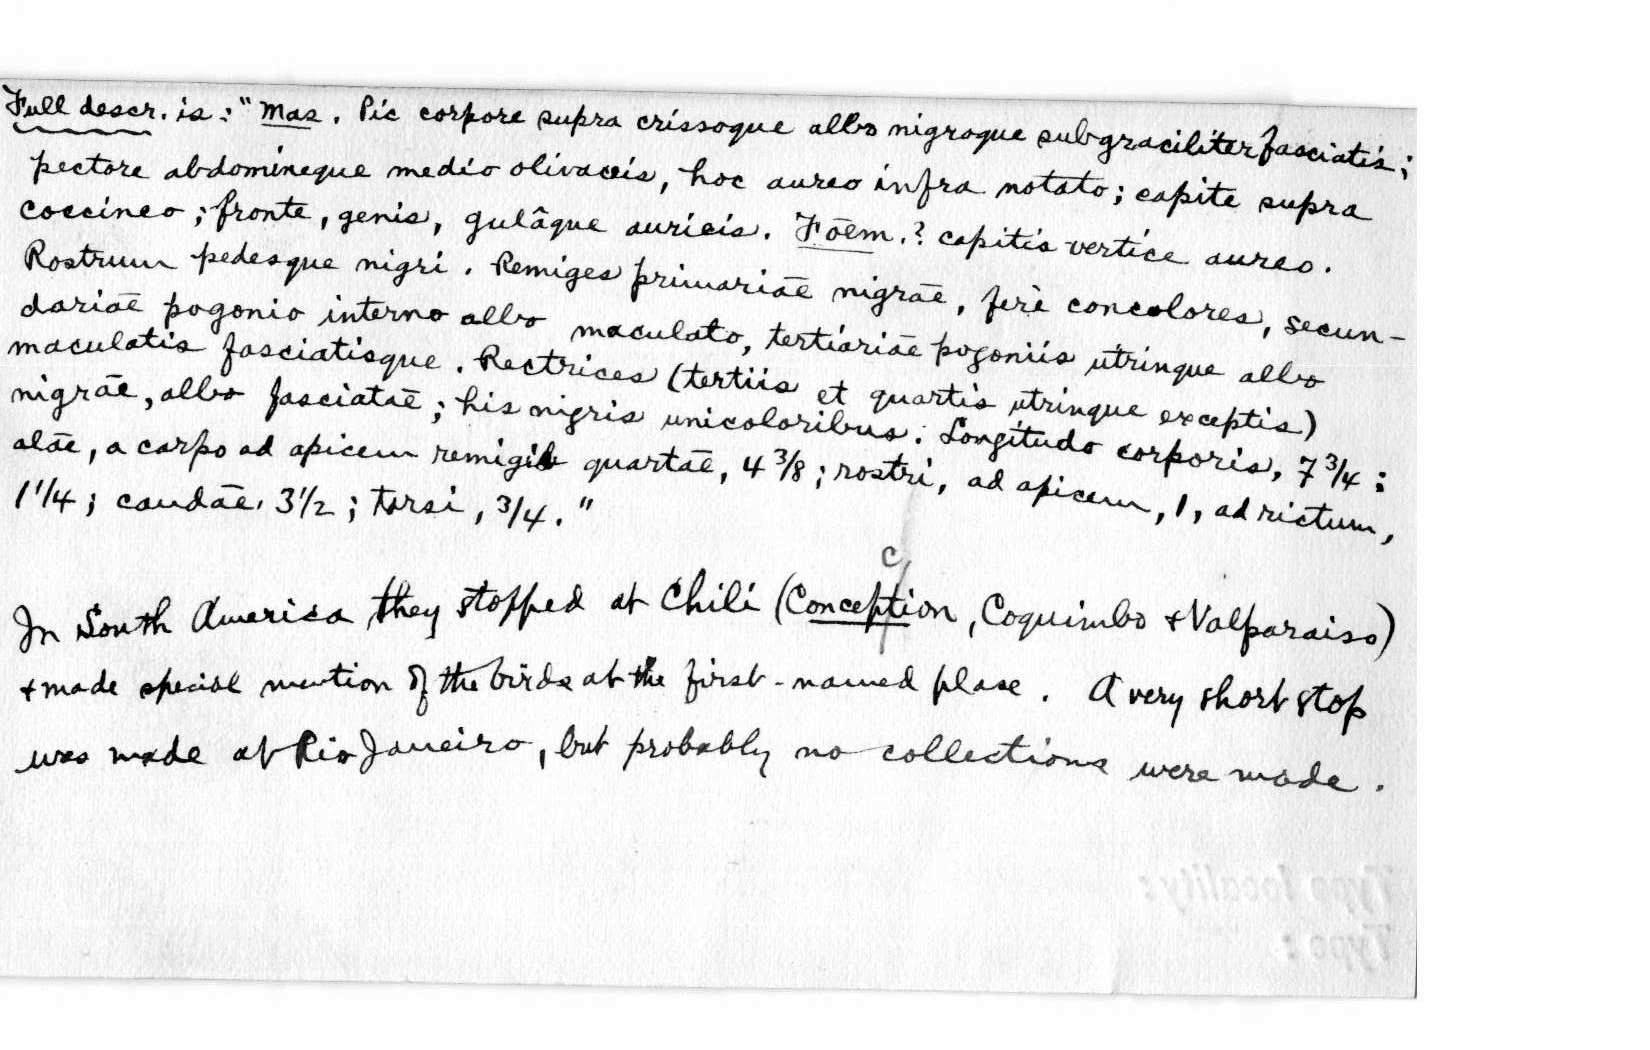 Full descr. is: "Mas. Pic corpore supra crissoque albo nigroque subgraciliter fasciatis;
pectore abdomineque medio olivaceis, hoc aureo infra notato; capite supra
coccineo; fronte, genis, gulâque aurieis. Foēm.? capitis vertice aureo.
Rostrum pedesque nigri. Remiges primariāe nigrāe, ferè concolores, secun-
dariāe pogonio interno albo maculato, tertiariāe pogoniis utrinque albo
maculatis fasciatisque. Rectrices (tertiis et quartis utrinque exceptis)
nigrāe, albo fasciatāe; his nigris unicoloribus. Longitudo corporis, 7 3/4:
alāe, a carpo ad apicem remigis quartāe, 4 3/8; rostri, ad apicem, 1, ad rictum,
1 1/4; caudāe, 3 1/2; tarsi, 3/4."
c
In South America they stopped at Chili (Conception, Coquimbo + Valparaiso)
+ made special mention of the birds at the first-named place. A very short stop
was made at Rio Janeiro, but probably no collections were made.
Type locality:
Type: